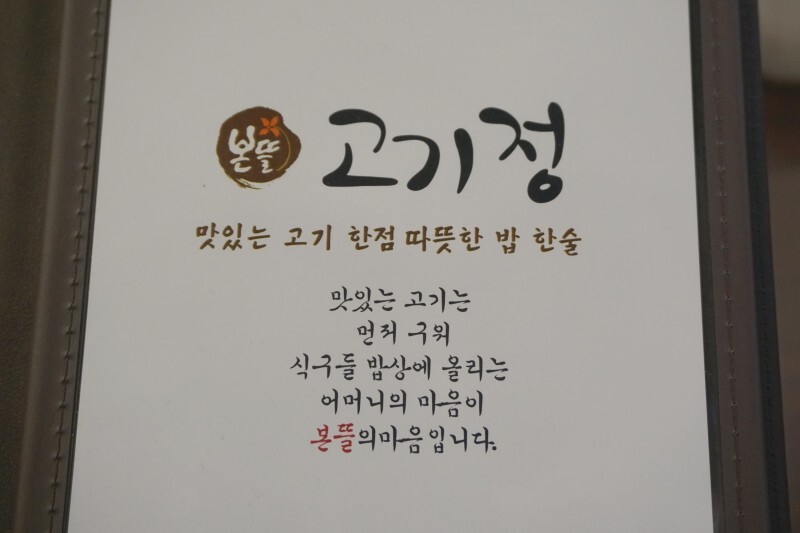 본뜰 고기정
맛있는 고기 한점 따뜻한 밥 한술
맛있는 고기는
먼저 구워
식구들 밥상에 올리는
어머니의 마음이
본뜰의마음입니다.